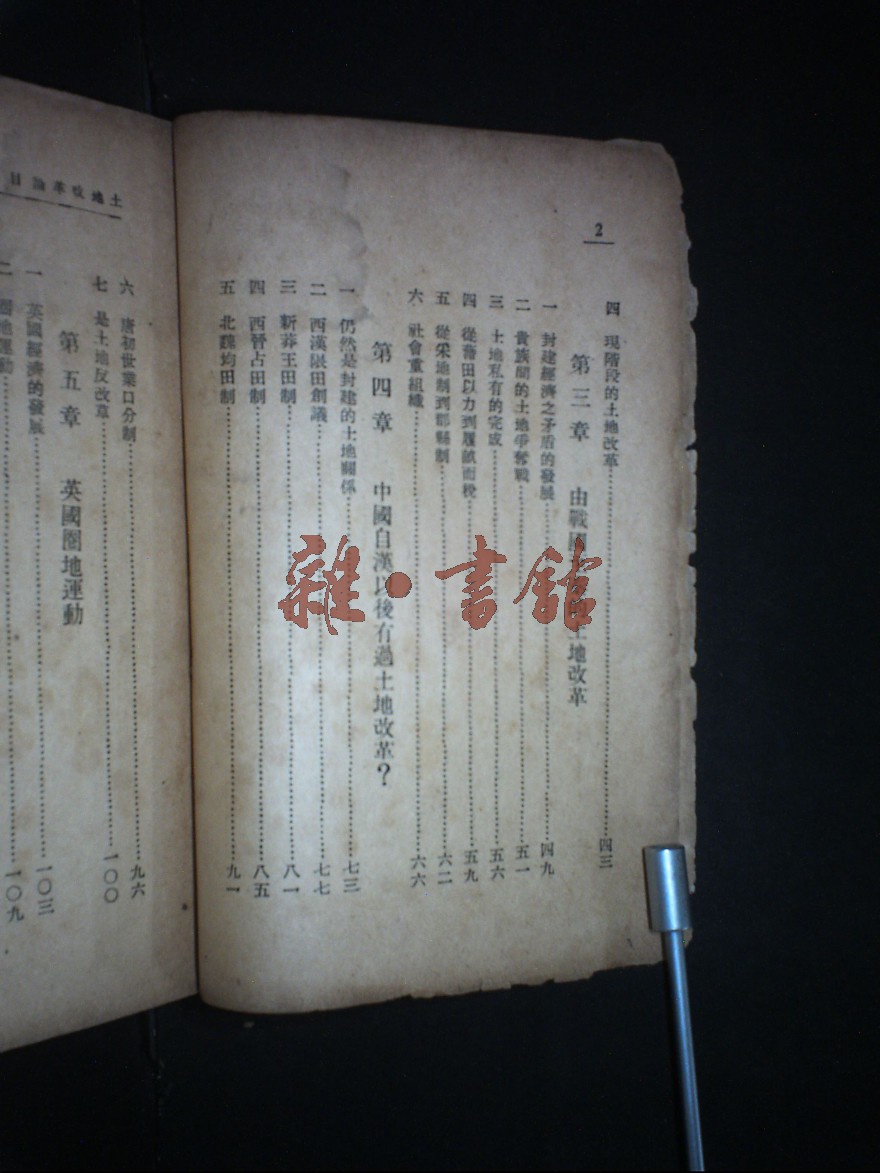 2
四 現階段的土地改革 四三
第三章 由戰國 土地改革
一 封建經濟之矛盾的發展 四九
二 貴族間的土地爭奪戰 五一
三 土地私有的完成 五六
四 從藉田以力到履畝而稅 五九
五 從采地制到郡縣制 六二
六 社會重組織 六六
第四章 中國自漢以後有過土地改革？
一 仍然是封建的土地關係 七三
二 西漢限田創議 七七
三 新莽王田制 八一
四 西晉占田制 八五
五 北魏均田制 九一
土地改革論目
六 唐初世業口分制 九六
七 是土地反改革 一〇〇
第五章 英國圈地運動
一 英國經濟的發展 一〇三
二 圈地運動 一〇九
雜·書館